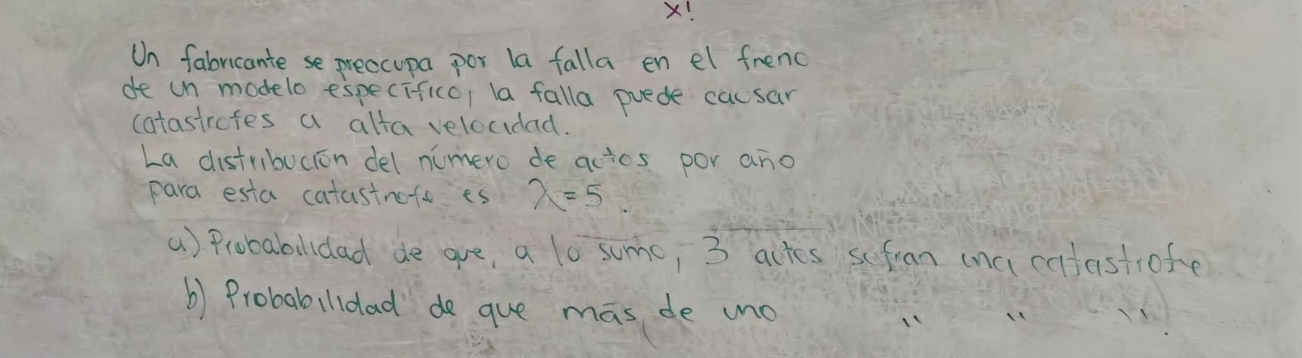 x!
Un fabricante se preocupa por la falla en el freno
de un modelo específico, la falla puede causar
catastrofes a alta velocidad.
La distribución del número de autos por año
para esta catastrofe es λ=5.
a) Probabilidad de que, a lo sumo, 3 autos sufran una catastrofe
b) Probabilidad de que más de uno " " "